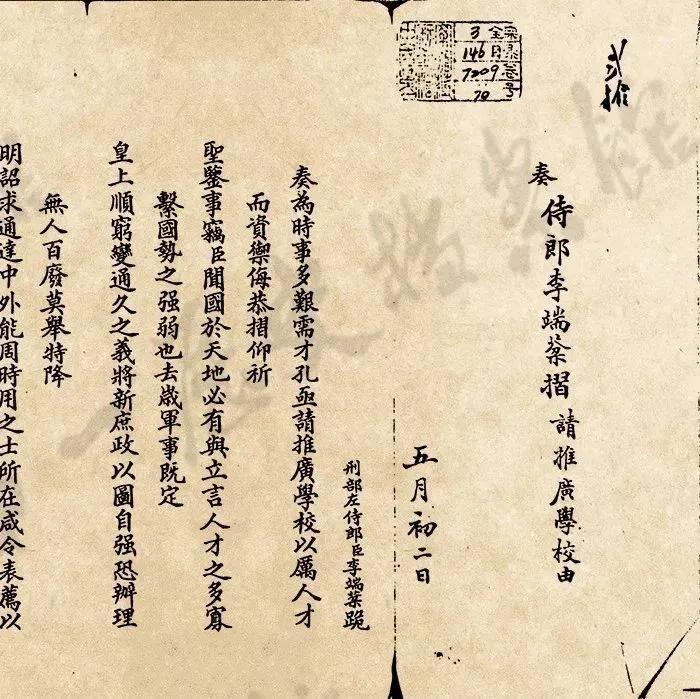 弍
推
3 全宗
146 目录
7209 卷号
70 号
奏 侍郎李端棻摺 請推廣學校由
五月初二日
刑部左侍郎臣李端棻跪
奏為時事多艱需才孔亟請推廣學校以厲人才
而資禦侮恭摺仰祈
聖鑒事竊臣聞國於天地必有與立言人才之多寡
繫國勢之强弱也去歲軍事既定
皇上順窮變通久之義將新庶政以圖自强恐辦理
無人百廢莫舉特降
明詔求通達中外能周時用之士所在咸令表薦以